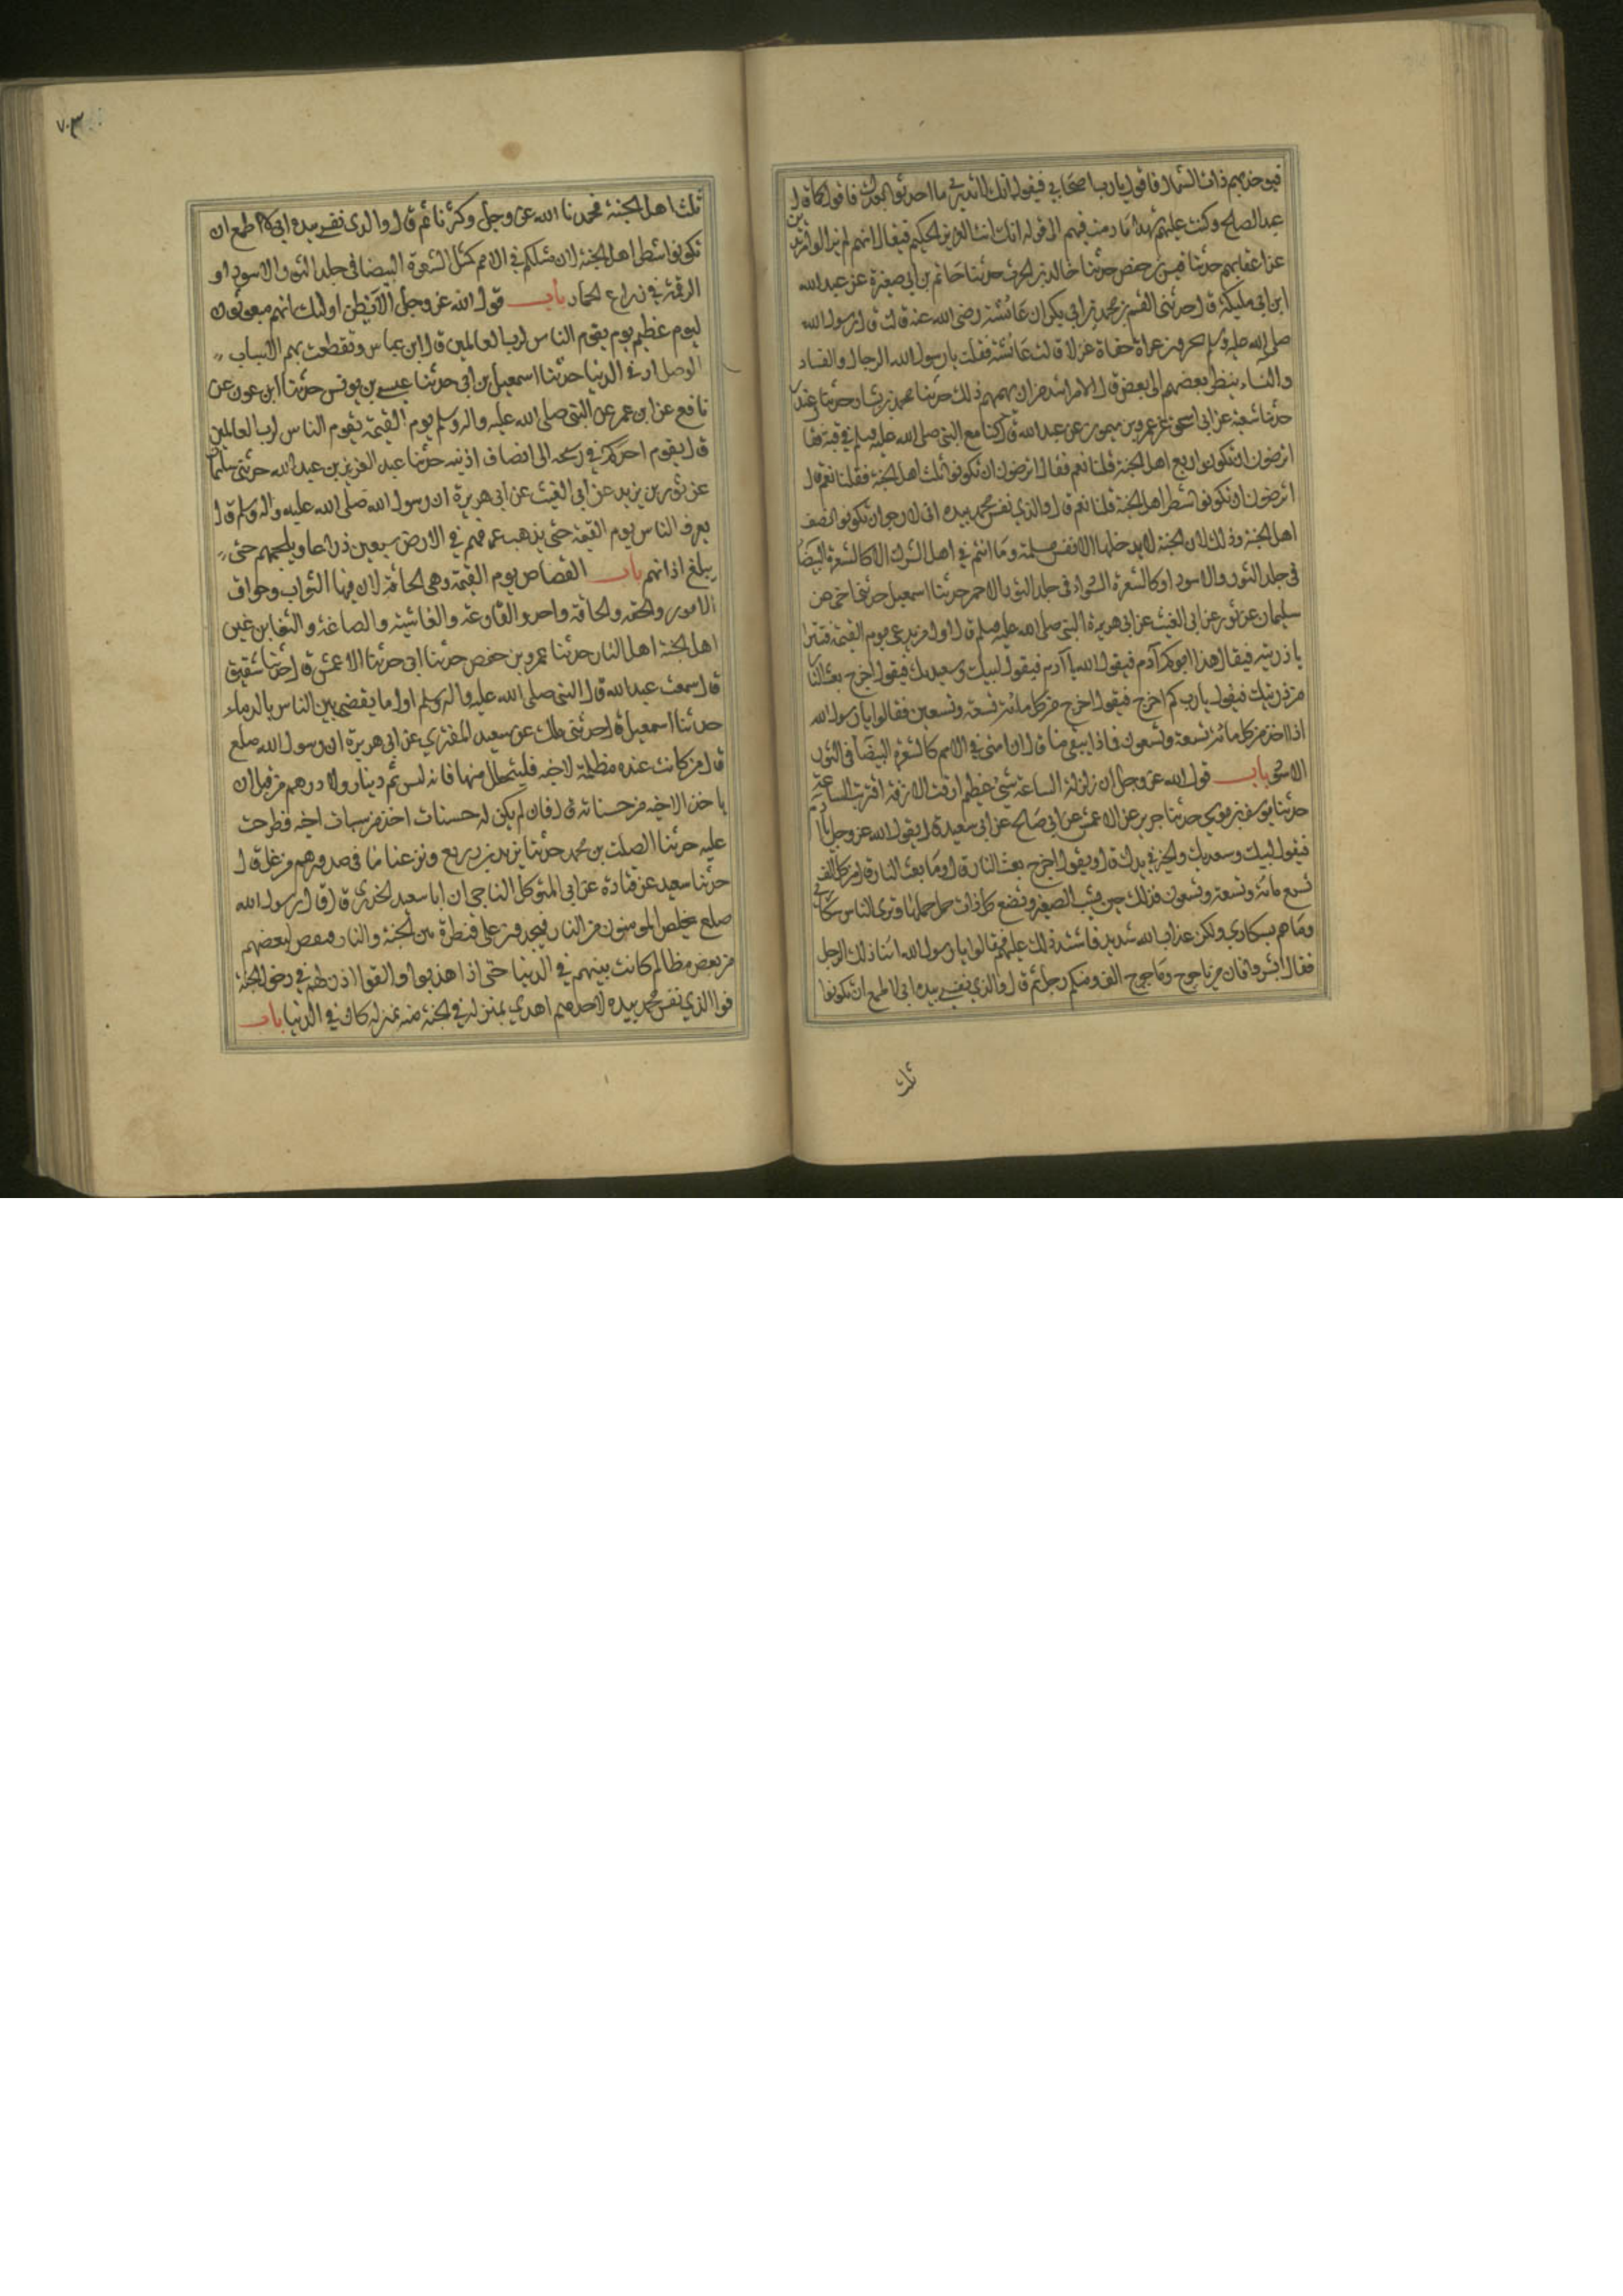 فيوخذ بهم ذات الشمال فاقول يارب اصحابي فيقول انك لا تدري ما احدثوا بعدك فاقول كما قال
عبد الصالح وكنت عليهم شهيدا ما دمت فيهم الى قوله انك انت العزيز الحكيم فيقال انهم لم يزالوا مرتدين
عن اعقابهم حدثنا قيس بن حفص حدثنا خالد بن الحرث حدثنا حاتم بن ابي صغيرة عن عبد الله
ابن ابي مليكة قال حدثني القسم بن محمد بن ابي بكر ان عائشة رضى الله عنه قالت قال رسول الله
صلى الله عليه وسلم تحشرون عراة حفاة غرلا قالت عائشة فقلت يا رسول الله الرجال والنساء
والنساء ينظر بعضهم الى بعض قال الامر اشد من ان يهمهم ذلك حدثنا محمد بن بشار حدثنا غندر
حدثنا شعبة عن ابي اسحق عن عمرو بن ميمون عن عبد الله قال كنا مع النبى صلى الله عليه وسلم في قبة فقا
اترضون ان تكونوا ربع اهل الجنة قلنا نعم فقال اترضون ان تكونوا ثلث اهل الجنة فقلنا نعم قال
اترضون ان تكونوا شطر اهل الجنة قلنا نعم قال والذي نفس محمد بيده انى لارجو ان تكونوا نصف
اهل الجنة وذلك لان الجنة لا يدخلها الا نفس مسلمة وما انتم في اهل الشرك الا كالشعرة البيضا
فى جلد الثور والاسود او كالشعرة السواد فى جلد الثور الاحمر حدثنا اسمعيل حدثني اخي عن
سليمان عن ثور عن ابي الغيث عن ابي هريرة النبى صلى الله عليه وسلم قال اول من يدعى يوم القيمة فتترا
يا ذريته فيقال هذا ابوكم آدم فيقول الله يا آدم فيقول لبيك وسعديك فيقول اخرج بعث النا
من ذريتك فيقول يارب كم اخرج فيقول اخرج من كل مائة تسعة وتسعين فقالوا يا رسول الله
اذا اخذ من كل مائة تسعة وتسعون فماذا يبقى منا قال ان امتي في الامم كالشعرة البيضا فى الثور
الاسود باب قول الله عز وجل ان زلزلة الساعة شيء عظيم ازفت الازفة اقتربت الساعة
حدثنا يوسف بن موسي حدثنا جرير عن الاعمش عن ابي صالح عن ابي سعيد قال يقول الله عز وجل يا ادم
فيقول لبيك وسعديك والخير في يدك قال ويقول اخرج بعث النار قال وما بعث النار قال من كل الف
تسع مائة وتسعة وتسعون فذلك حين يشيب الصغير وتضع كل ذات حمل حملها وترى الناس سكارى
وما هم بسكاري ولكن عذاب الله شديد فاشتد ذلك عليهم فقالوا يا رسول الله اينا ذلك الرجل
فقال ابشروا فان من ياجوج وماجوج الف ومنكم رجل ثم قال والذي نفسي بيده انى لاطمع ان تكونوا
ثلث
٧٠٣
ثلث اهل الجنة فحمدنا الله عز وجل وكبرنا ثم قال والذى نفسي بيده انى لاطمع ان
تكونوا شطر اهل الجنة لان مثلكم في الامم كمثل الشعرة البيضا فى جلد الثور الاسود او
الرقمة في ذراع الحمار باب قول الله عز وجل الا يظن اولئك انهم مبعوثون
ليوم عظيم يوم يقوم الناس لرب العالمين قال ابن عباس وتقطعت بهم الاسباب
الوصلات في الدنيا حدثنا اسمعيل بن ابى حدثنا عيسي بن يونس حدثنا ابن عون عن
نافع عن ابن عمر عن النبى صلى الله عليه واله وسلم يوم القيمة يقوم الناس لرب العالمين
قال يقوم احدكم في رشحه الى انصاف اذنيه حدثنا عبد العزيز بن عبد الله حدثنى سليمان
عن ثور بن يزيد عن ابي الغيث عن ابى هريرة ان رسول الله صلى الله عليه واله وسلم قال
يعرق الناس يوم القيمة حتى يذهب عرقهم في الارض سبعين ذراعا ويلجمهم حتى
يبلغ اذانهم باب القصاص يوم القيمة وهى الحاقة لان فيها الثواب وحواق
الامور والحقه والحاقة واحد والقارعة والغاشية والصاخة والتغابن غبن
اهل الجنة اهل النار حدثنا عمرو بن حفص حدثنا ابى حدثنا الاعمش قال حدثنا شقيق
قال سمعت عبد الله قال النبى صلى الله عليه واله وسلم اول ما يقضى بين الناس بالدماء
حدثنا اسمعيل قال حدثنى ملك عن سعيد المقبري عن ابى هريرة ان رسول الله صلعم
قال من كانت عنده مظلمة لاخيه فليتحلل منها فانه ليس ثم دينار ولا درهم من قبل ان
ياخذ لاخيه من حسناته قال فان لم يكن له حسنات اخذ من سيات اخيه فطرحت
عليه حدثنا الصلت بن محمد حدثنا يزيد بن زريع ونزعنا ما فى صدورهم من غل قال
حدثنا سعيد عن قتادة عن ابى المتوكل الناجى ان ابا سعيد الخدرى قال قال رسول الله
صلعم يخلص المومنون من النار فيحبسون على قنطرة بين الجنة والنار فيقص لبعضهم
من بعض مظالم كانت بينهم في الدنيا حتى اذا هذبوا ونقوا اذن لهم في دخول الجنة
فوا الذي نفس محمد بيده لاحدهم اهدي بمنزله في الجنة منه بمنزله كان في الدنيا باب